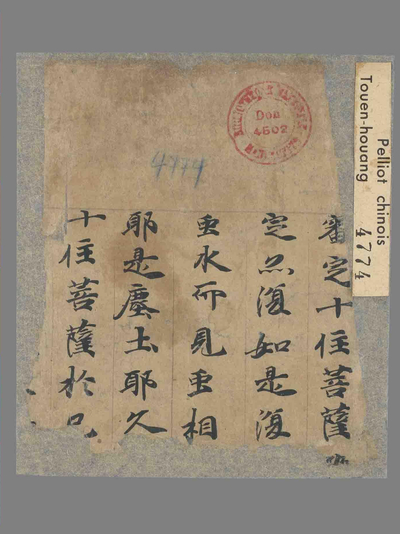 Pelliot chinois
Touen-houang
4774
Don
4502
4774
審定十住菩薩
定亦復如是復
虫水而見虫相
耶是塵土耶久
十住菩薩於